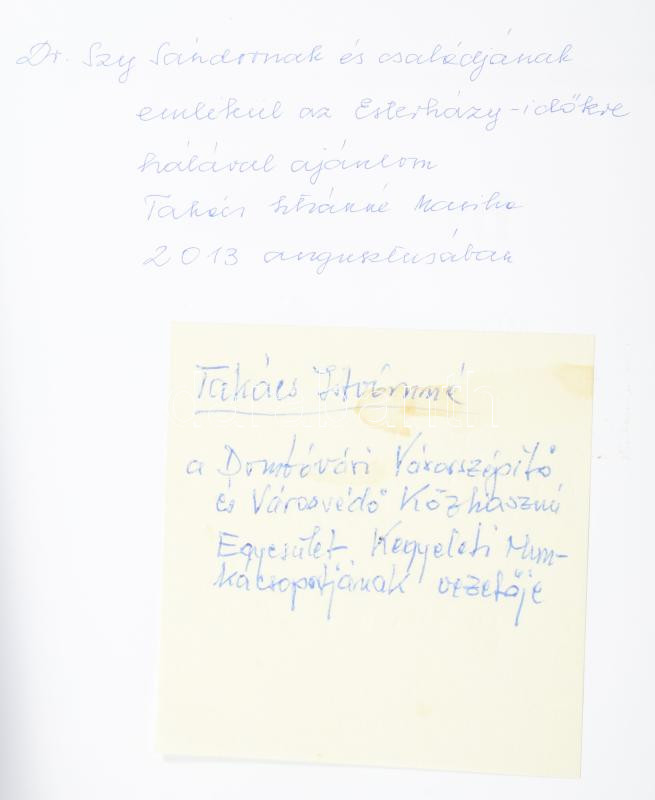 Dr. Szy Sándornak és családjának
emlékül az Esterházy-időkre
hálával ajánlom
Takács Istvánné Marika
2013 augusztusában
Takács Istvánné
a Dombóvári Városszépítő
és Városvédő Közhasznú
Egyesület Kegyeleti Mun-
kacsoportjának vezetője